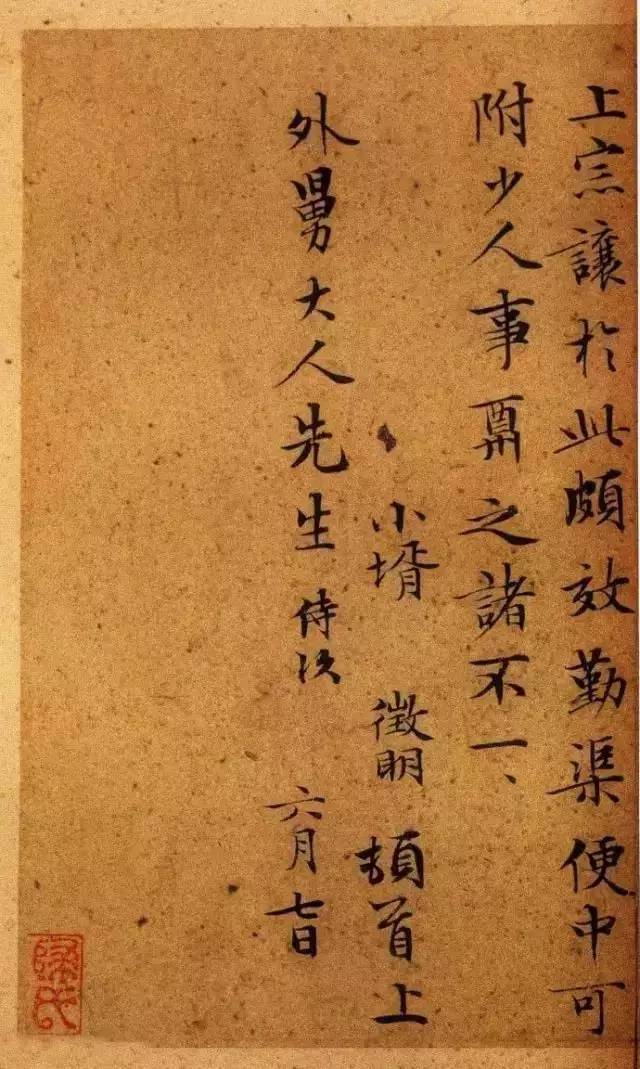 上宗讓於此頗效勤渠便中可
附少人事之諸不一、
小壻 徵明 頓首上
外舅大人先生 侍次
六月七日